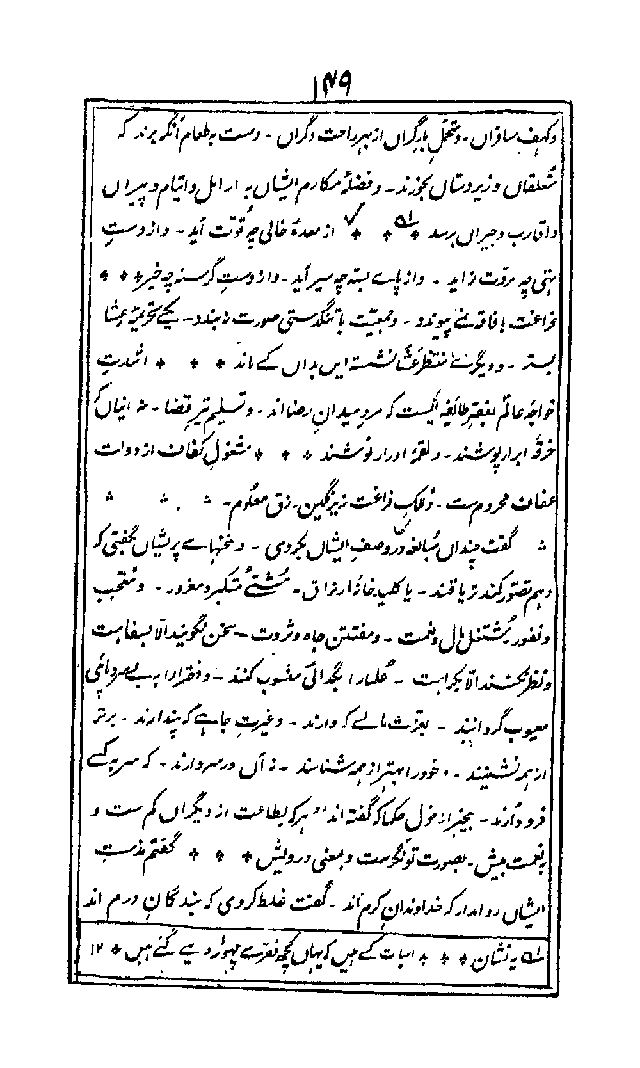 ۱۴۹
وکهف مسافران - و متحمل بار گراں از بهر راحت دگراں - و دست بہ طعام آنگہ برند کہ
متعلقاں و زیردستاں بخورند - و فضلۂ مکارم ایشاں بہ ارامل و ایتام و پیراں
و اقارب و جیراں برسد * * * از معدۂ خالی چہ قوت آید - و از دستِ
تہی چہ مروت زاید - و از پاے بستہ چہ سیر آید - و از دستِ گرسنہ چہ خیر * *
فراغت با فاقہ نے پیوندد - و جمعیت با تنگدستی صورت نہ بندد - یکے تحریمۂ عشا
بستہ - و دیگرے منتظر عَشا نشستہ ایں بداں کے ماند * * * اشارتِ
خواجۂ عالم بفقر طائفہ ایست کہ مردِ میدانِ رضا اند - و تسلیمِ تیرِ قضا - نہ ایناں کہ
خرقۂ ابرار پوشند - و لقمۂ ادرار نوشند * * * مشغولِ کفاف از دولتِ
عفاف محروم ست - و ملکِ فراغت زیرِ نگین رزق معلوم -
* گفت چنداں مبالغہ در وصفِ ایشاں بکردی - و سخنہاے پریشاں بگفتی کہ
وہم تصور کند تریاق اند - یا کلیدِ خانۂ ارزاق - مُشتے متکبر و مغرور - و معجب
و نفور مشتغل مال و نعمت - و مفتتنِ جاہ و ثروت - سخن نگویند الا بسفاہت
و نظر نکنند الا بکراہت - علما را بگدائی منسوب کنند - و فقرا را بہ بے سر و پائی
معیوب گردانند - بعزتِ مالے کہ دارند - و غیرتِ جاہے کہ پندارند - برتر
از ہمہ نشینند - و خود را بہتر از ہمہ شناسند - نہ آں در سر دارند - کہ سر بہ کسے
فرود آرند - بیخبر از قول حکما کہ گفتہ اند ہر کہ بطاعت از دیگراں کم ست و
بہ نعمت بیش - بصورت تونگرست و بمعنی درویش * * * گفتم مذمتِ
ایشاں روا مدار کہ خداوندانِ کرم اند - گفت غلط کردی کہ بندگانِ درم اند
لہ یہ نشان * * * ابیات کے ہیں کہ یہاں کچھ فقرے چھوڑ دیے گئے ہیں * ۱۲